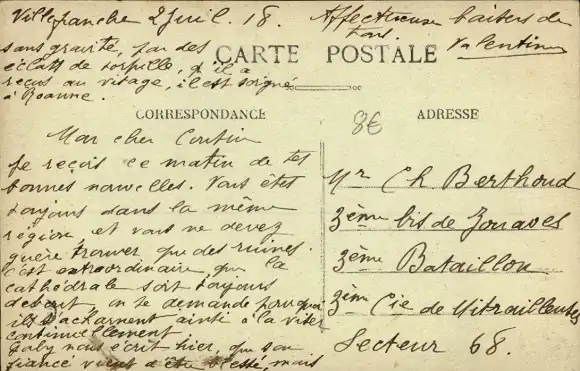 Villefranche 2 Juil. 18. Affectueux baisers de
tous.
Valentine
sans gravité, par des
éclats de torpille, qu'il a
reçus au visage, il est soigné
à Roanne.
CARTE POSTALE
CORRESPONDANCE
ADRESSE
8€
Mon cher Cousin
Je reçois ce matin de tes
bonnes nouvelles. Vous êtes
toujours dans la même
région, et vous ne devez
guère trouver que des ruines.
C'est extraordinaire que la
cathédrale soit toujours
debout, on se demande pourquoi
ils s'acharnent ainsi à la viser
continuellement.
Gaby nous écrit hier, que son
fiancé vient d'être blessé, mais
Mr Ch Berthoud
3ème bis de Zouaves
3ème Bataillon
3ème Cie de Mitrailleuses
Secteur 68.